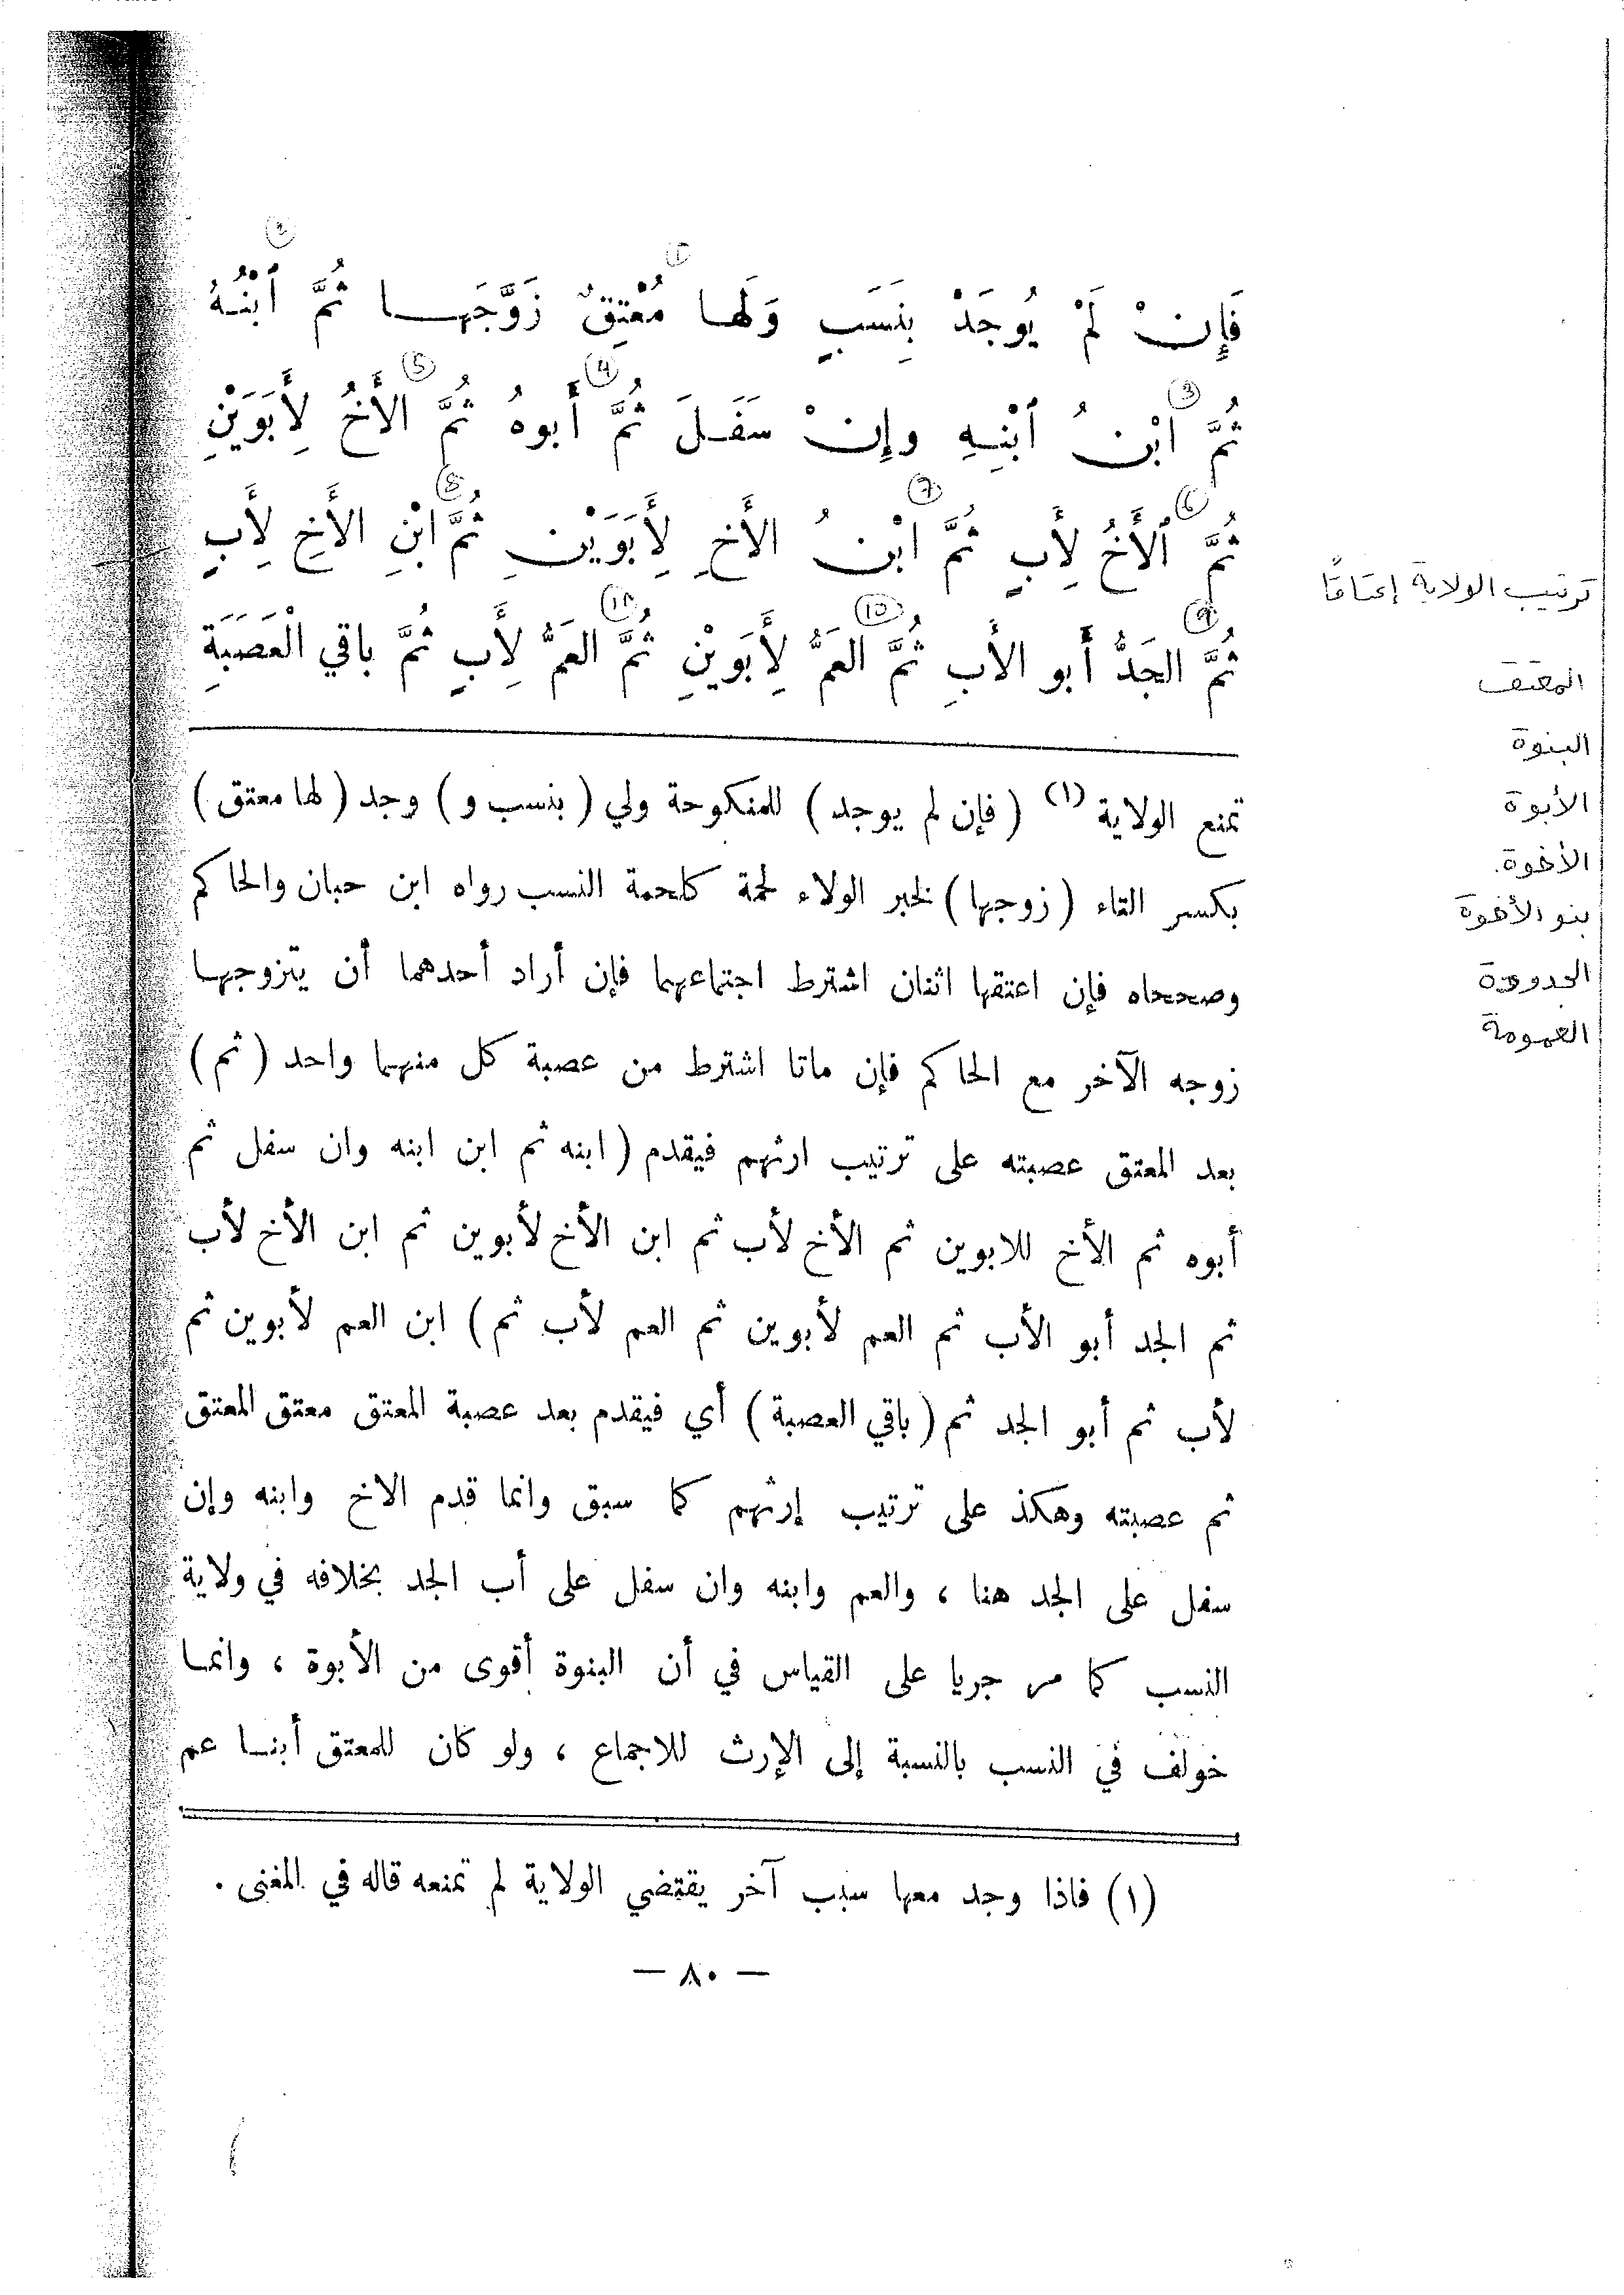 فَإِنْ لَمْ يُوجَدْ بِنَسَبٍ وَلَها مُعْتِقٌ زَوَّجَها ثُمَّ ٱبْنُهُ
ثُمَّ ابْنُ ٱبْنِهِ وإِنْ سَفَلَ ثُمَّ أَبوهُ ثُمَّ الأَخُ لِأَبَوَيْنِ
ثُمَّ ٱلأَخُ لِأَبٍ ثُمَّ ابْنُ الأَخِ لِأَبَوَيْنِ ثُمَّ ابْنِ الأَخِ لِأَبٍ
ثُمَّ الجَدُّ أَبو الأَبِ ثُمَّ العَمُّ لِأَبَوَيْنِ ثُمَّ العَمُّ لِأَبٍ ثُمَّ باقي الْعَصَبَةِ
تمنع الولاية (١) ( فإن لم يوجد ) للمنكوحة ولي ( بنسب و ) وجد ( لها معتق )
بكسر التاء ( زوجها ) لخبر الولاء لحمة كلحمة النسب رواه ابن حبان والحاكم
وصححاه فإن اعتقها اثنان اشترط اجتماعهما فإن أراد أحدهما أن يتزوجها
زوجه الآخر مع الحاكم فإن ماتا اشترط من عصبة كل منهما واحد ( ثم )
بعد المعتق عصبته على ترتيب ارثهم فيقدم ( ابنه ثم ابن ابنه وان سفل ثم
أبوه ثم الأخ للابوين ثم الأخ لأب ثم ابن الأخ لأبوين ثم ابن الأخ لأب
ثم الجد أبو الأب ثم العم لأبوين ثم العم لأب ثم ) ابن العم لأبوين ثم
لأب ثم أبو الجد ثم ( باقي العصبة ) أي فيقدم بعد عصبة المعتق معتق المعتق
ثم عصبته وهكذ على ترتيب إرثهم كما سبق وانما قدم الاخ وابنه وإن
سفل على الجد هنا ، والعم وابنه وان سفل على أب الجد بخلافه في ولاية
النسب كما مر جريا على القياس في أن البنوة أقوى من الأبوة ، وانما
خولف في النسب بالنسبة إلى الإرث للاجماع ، ولو كان للمعتق أبنا عم
(١) فاذا وجد معها سبب آخر يقتضي الولاية لم تمنعه قاله في المغنى .
— ٨٠ —
ترتيب الولاية إعتاقًا
المعتق
البنوة
الأبوة
الأخوة.
بنو الأخوة
الجدودة
العمومة